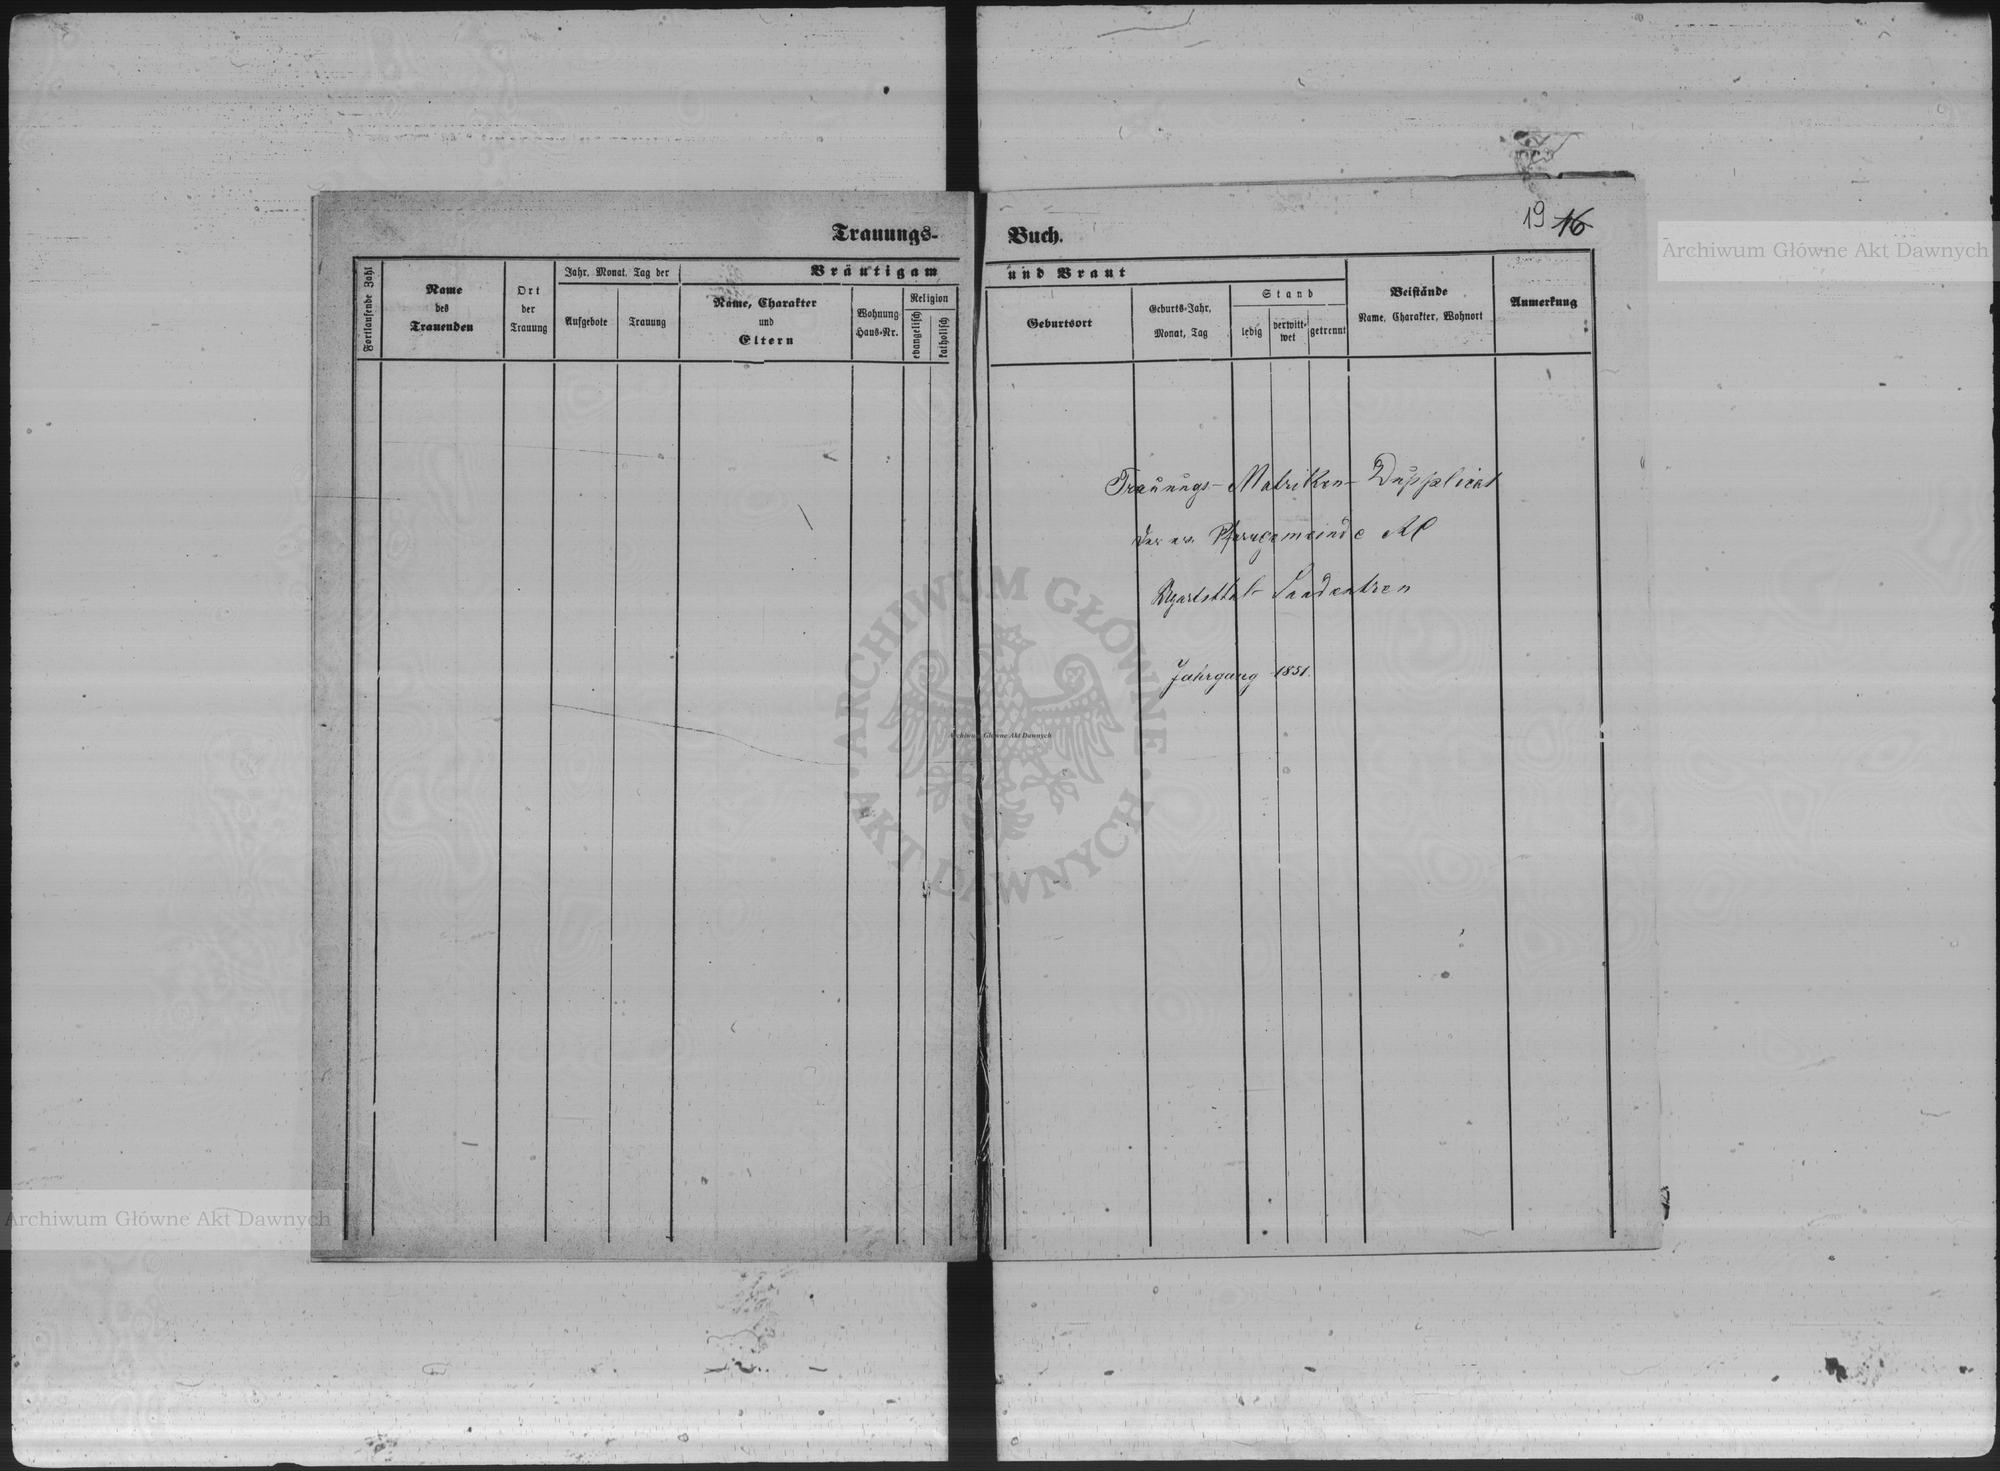 Trauungs-
Buch.
19 16
Fortlaufende Zahl
Name
des
Trauenden
Ort
der
Trauung
Jahr, Monat, Tag der
Aufgebote
Trauung
Bräutigam
und Braut
Name, Charakter
und
Eltern
Wohnung
Haus-Nr.
Religion
evangelisch
katholisch
Geburtsort
Geburts-Jahr,
Monat, Tag
Stand
ledig
verwitt-
wet
getrennt
Beistände
Name, Charakter, Wohnort
Anmerkung
Trauungs-Matriken-Dupplicat
der ev. Pfarrgemeinde AC
Ugartsthal-Landestreu
Jahrgang 1851.
Archiwum Główne Akt Dawnych
ARCHIWUM GŁÓWNE
AKT DAWNYCH
Archiwum Główne Akt Dawnych
Archiwum Główne Akt Dawnych